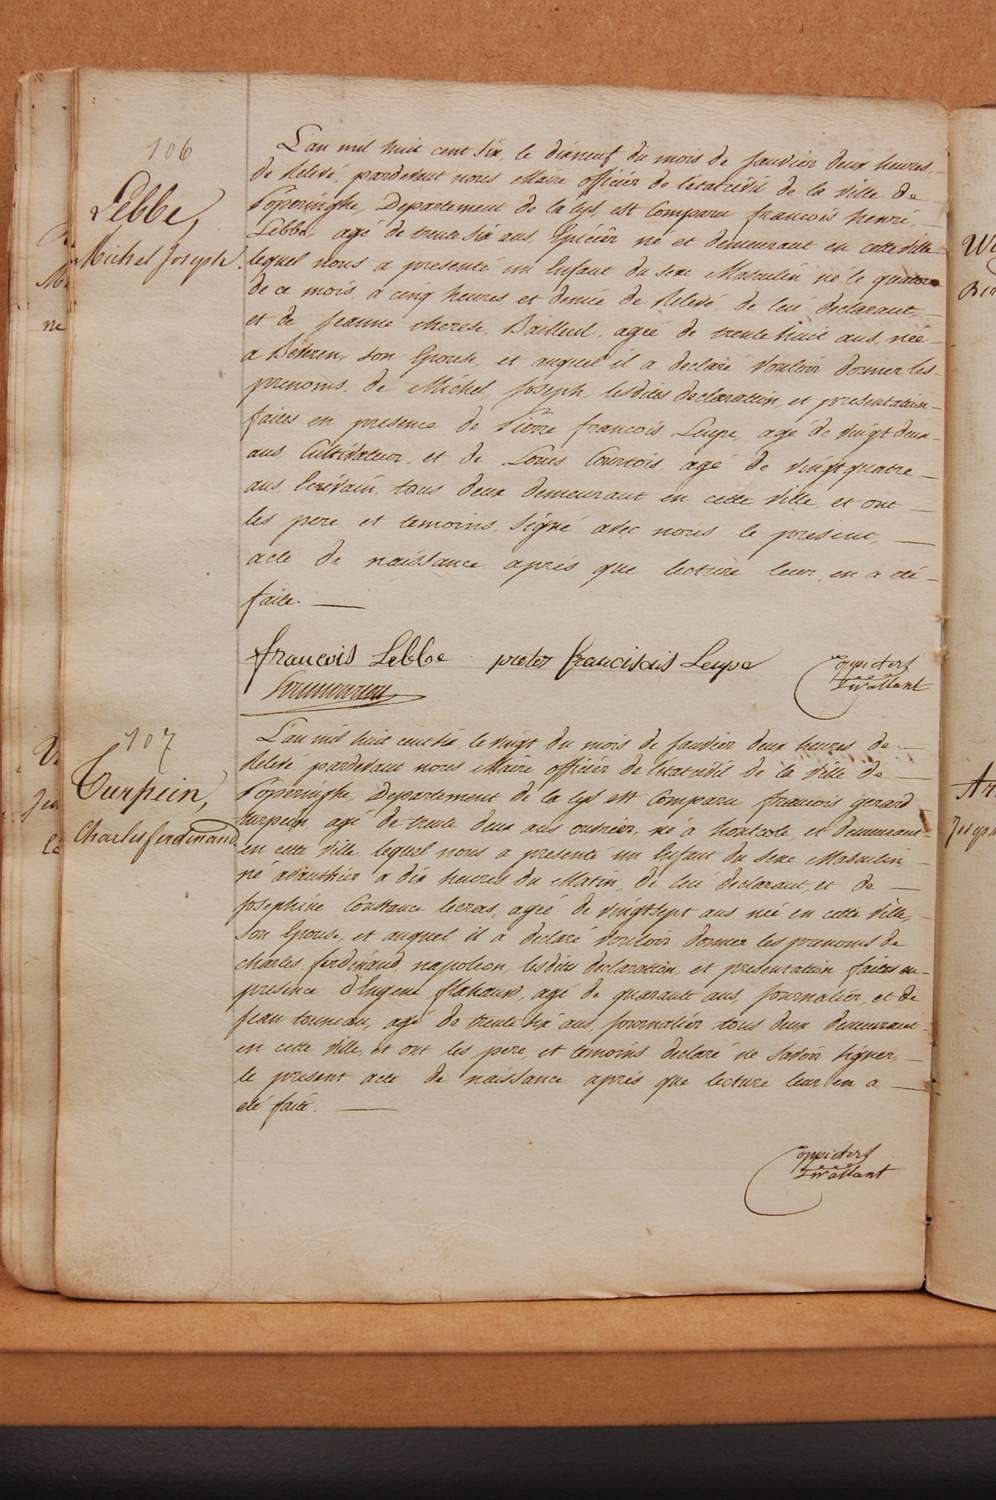 106
Lebbe,
Michel Joseph.
L'an mil huit cent six, le dixneuf du mois de janvier deux heures
de relevé, pardevant nous Maire officier de l'etat civil de la ville de
Poperinghe, Departement de la Lys, est comparu francois henri
Lebbe, agé de trente six ans, Epicier né et demeurant en cette ville
lequel nous a presenté un Enfant du sexe Masculin né le quatorze
de ce mois à cinq heures et demie de relevé, de lui declarant,
et de Jeanne therese Bailleul, agée de trente huit ans, née
a Beveren, son Epouse, et auquel il a declaré vouloir donner les
prenoms de Michel Joseph, lesdites declaration et presentation
faites en presence de Pierre francois Leupe, agé de vingt deux
ans Cultivateur, et de Louis Courtois agé de vingt quatre
ans, Ecrivain, tous deux demeurant en cette ville, et ont
les pere et temoins signé avec nous le present,
acte de naissance après que lecture leur en a été
faite.
francois Lebbe pieter francisais Leupe
107
Turpein,
Charles ferdinand
L'an mil huit cent six, le vingt du mois de janvier deux heures de
relevé pardevant nous Maire officier de l'etat civil de la ville de
Poperinghe, Departement de la Lys est comparu francois gerard
turpein agé de trente deux ans ouvrier, né à houtcote, et demeurant
en cette ville, lequel nous a presenté un Enfant du sexe Masculin
né avanthier a dix heures du Matin, de lui declarant, et de
Josephine Constance lecras, agée de vingtsept ans née en cette ville,
son Epouse, et auquel il a declaré vouloir donner les prenoms de
charles ferdinand napoleon, lesdites declaration, et presentation faites en
presence d'Eugene flahaut, agé de quarante ans, journalier, et de
Jean tonneau, agé de trente six ans, journalier tous deux demeurant
en cette ville, et ont les pere, et temoins declaré ne savoir signer,
le present acte de naissance après que lecture leur en a
été faite.